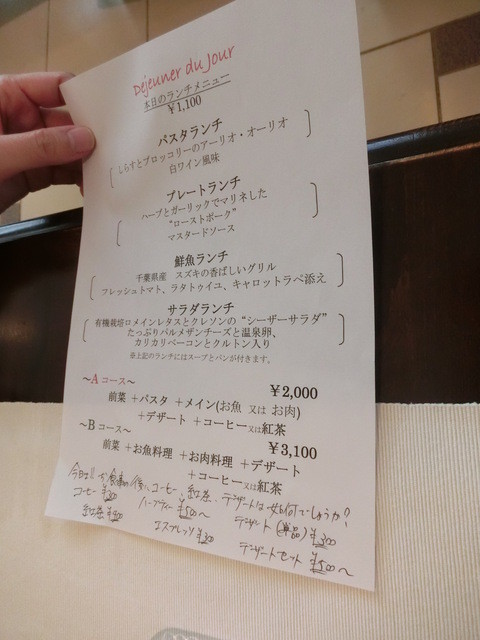 Déjeuner du Jour
本日のランチメニュー
¥1,100
パスタランチ
しらすとブロッコリーのアーリオ・オーリオ
白ワイン風味
プレートランチ
ハーブとガーリックでマリネした
"ローストポーク"
マスタードソース
鮮魚ランチ
千葉県産 スズキの香ばしいグリル
フレッシュトマト、ラタトゥイユ、キャロットラペ添え
サラダランチ
有機栽培ロメインレタスとクレソンの"シーザーサラダ"
たっぷりパルメザンチーズと温泉卵、
カリカリベーコンとクルトン入り
※上記のランチにはスープとパンが付きます。
～Aコース～ ¥2,000
前菜 +パスタ +メイン(お魚 又は お肉)
+デザート +コーヒー又は紅茶
～Bコース～ ¥3,100
前菜 +お魚料理 +お肉料理 +デザート
+コーヒー又は紅茶
お食事の後、コーヒー 紅茶、デザートは如何でしょうか?
コーヒー ¥300 ハーブティー ¥500～ デザート(単品) ¥300
紅茶 エスプレッソ ¥300 デザートセット ¥500～